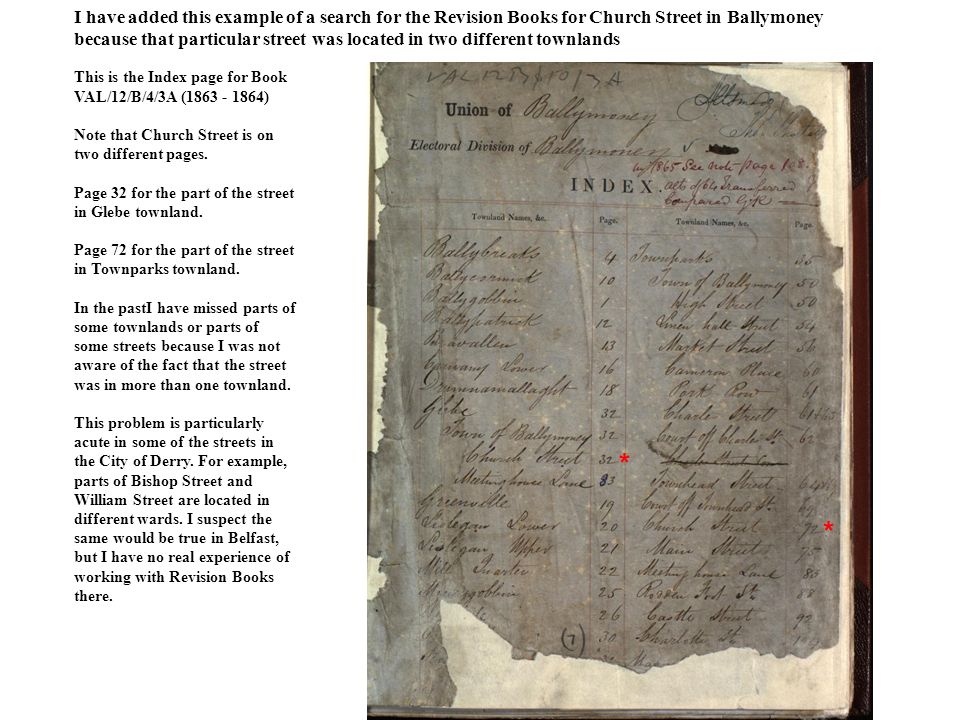 I have added this example of a search for the Revision Books for Church Street in Ballymoney
because that particular street was located in two different townlands
This is the Index page for Book
VAL/12/B/4/3A (1863 - 1864)
Note that Church Street is on
two different pages.
Page 32 for the part of the street
in Glebe townland.
Page 72 for the part of the street
in Townparks townland.
In the pastI have missed parts of
some townlands or parts of
some streets because I was not
aware of the fact that the street
was in more than one townland.
This problem is particularly
acute in some of the streets in
the City of Derry. For example,
parts of Bishop Street and
William Street are located in
different wards. I suspect the
same would be true in Belfast,
but I have no real experience of
working with Revision Books
there.
Union of Ballymoney
Electoral Division of Ballymoney
1865 See note page
INDEX.
Transferred
Compared
Townland Names, &c. Page.
Ballybreaks 4
Ballycormick 10
Ballygobbin 1
Ballypatrick 12
Bravallen 13
Lower 16
Drumnamallaght 18
Glebe 32
Town of Ballymoney 32
Church Street 32 *
Meetinghouse Lane 33
Greenville 19
Lislegan Lower 20
Lislegan Upper 21
Mill Quarter 22
25
26
30
(7)
Townland Names, &c. Page.
Townparks 35
Town of Ballymoney 50
High Street 50
Linen hall Street 54
Market Street 56
Cameron Place 60
Port Row 61
Charles Street 61
Court off Charles St. 62
Townhead Street
Court off Townhead St. 69
Church Street 72 *
Main Street 75
Meetinghouse Lane 83
Rodden Foot St. 88
Castle Street 92
Charlotte St.